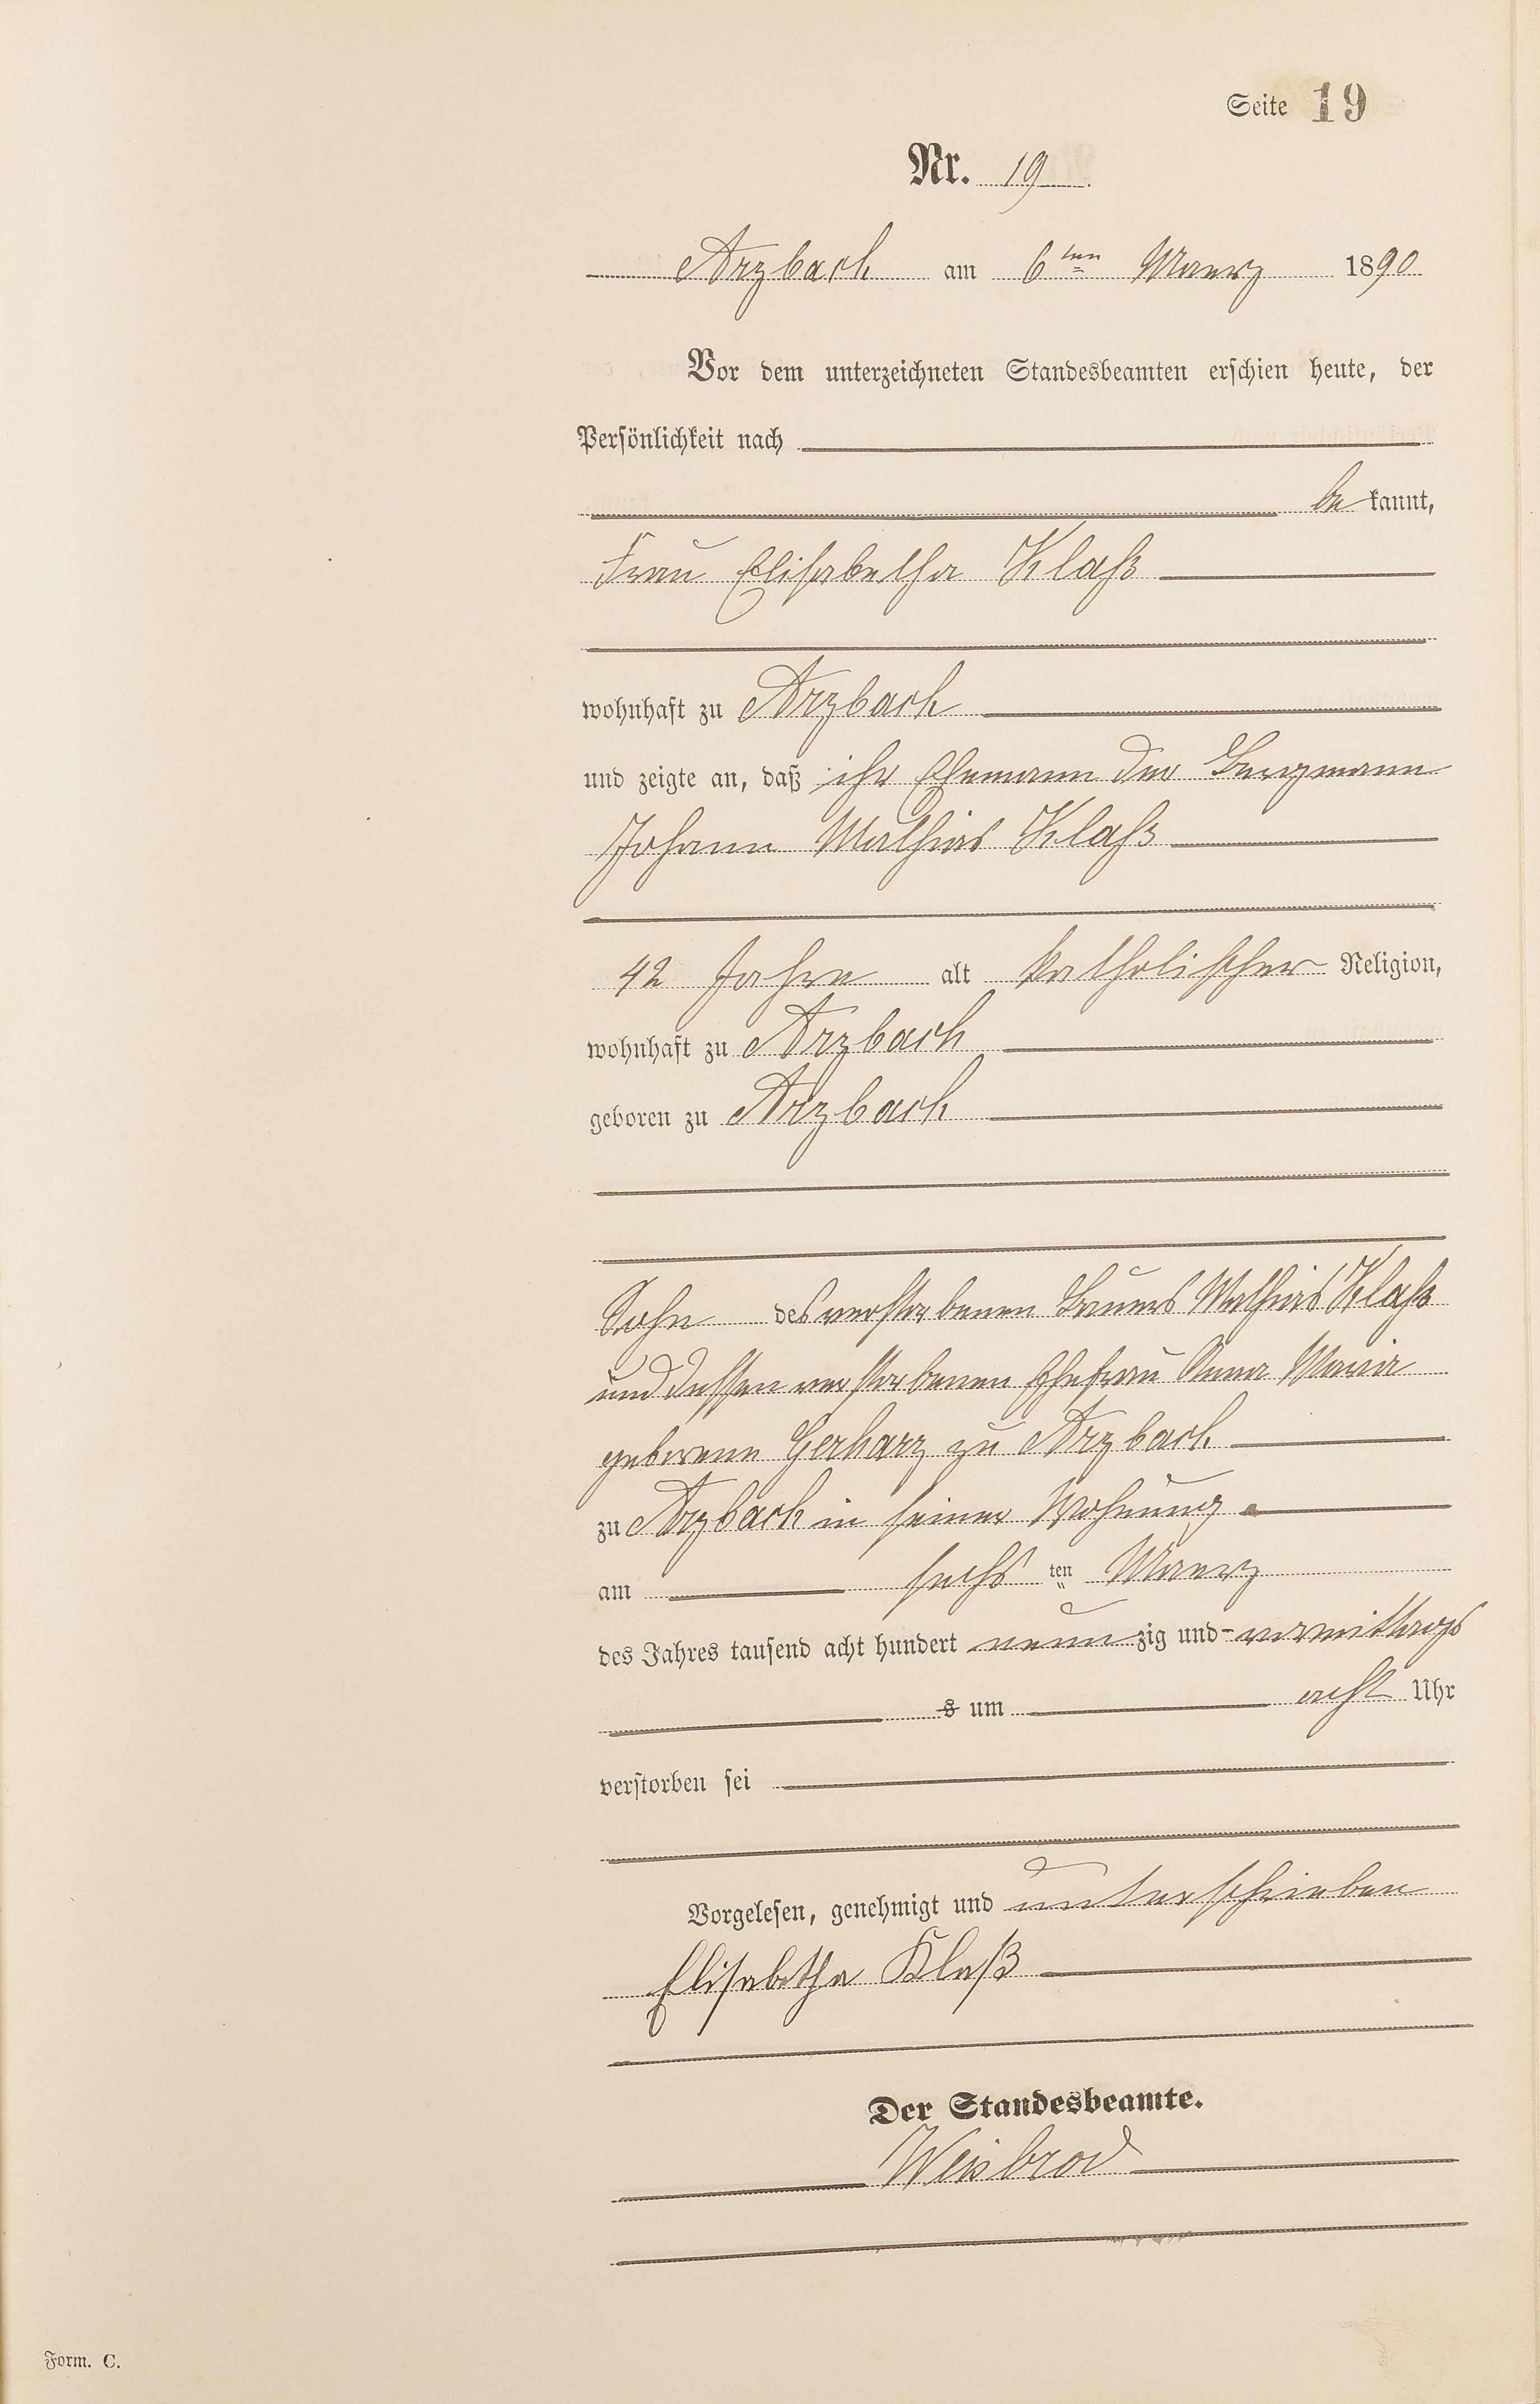 Seite 19
Nr. 19
Arzbach am 6ten Maerz 1890
Vor dem unterzeichneten Standesbeamten erschien heute, der
Persönlichkeit nach
be kannt,
Frau Elisabetha Klaß
wohnhaft zu Arzbach
und zeigte an, daß ihr Ehemann der Bergmann
Johann Mathias Klaß
42 Jahre alt katholischer Religion,
wohnhaft zu Arzbach
geboren zu Arzbach
Sohn des verstorbenen Bauers Mathias Klaß
und dessen verstorbenen Ehefrau Anna Maria
geborene Gerharz zu Arzbach
zu Arzbach in seiner Wohnung
am sechs ten Maerz
des Jahres tausend acht hundert neun zig und vormittags
s um acht Uhr
verstorben sei
Vorgelesen, genehmigt und unterschrieben
Elisabetha Klaß
Der Standesbeamte.
Weisbrod
Form. C.